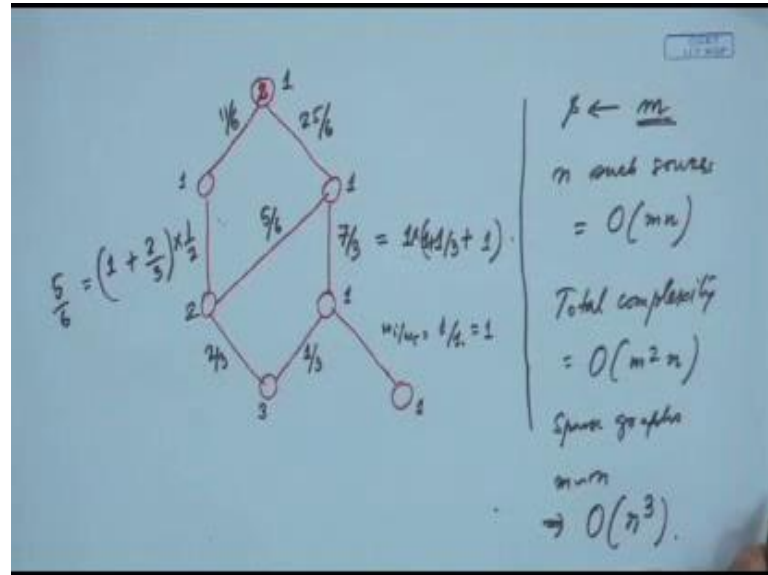 1
11/6
25/6
1
1
5/6
7/3 = 1*(1+1/3+1).
5/6 = (1 + 2/3) × 1/2
2
1
wi/wj = 1/1 = 1
2/3
1/3
3
1
s ← m
n such sources
= O(mn)
Total complexity
= O(m²n)
Sparse graphs
m~n
⇒ O(n³).